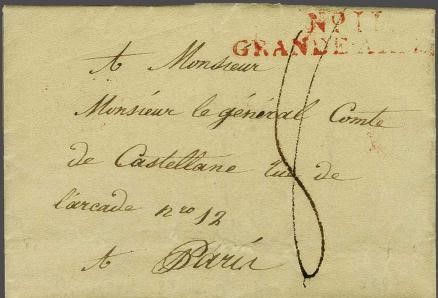 No 11
GRANDE-ARM
A Monsieur
Monsieur le général Comte
de Castellane rue de
l'arcade nro 12
A Paris
8